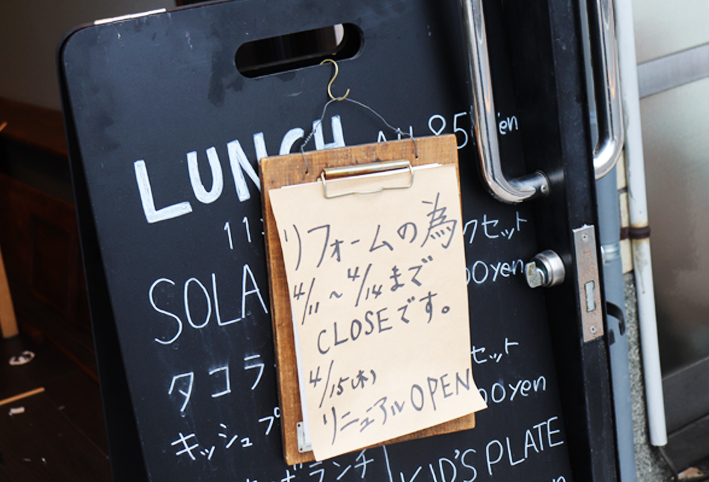 LUNCH ALL 85 yen
11
クセット
SOLA
00yen
タコラ
セット
00yen
キッシュプ
ランチ
KID'S PLATE
リフォームの為
4/11～4/14まで
CLOSEです。
4/15(木)
リニュアルOPEN